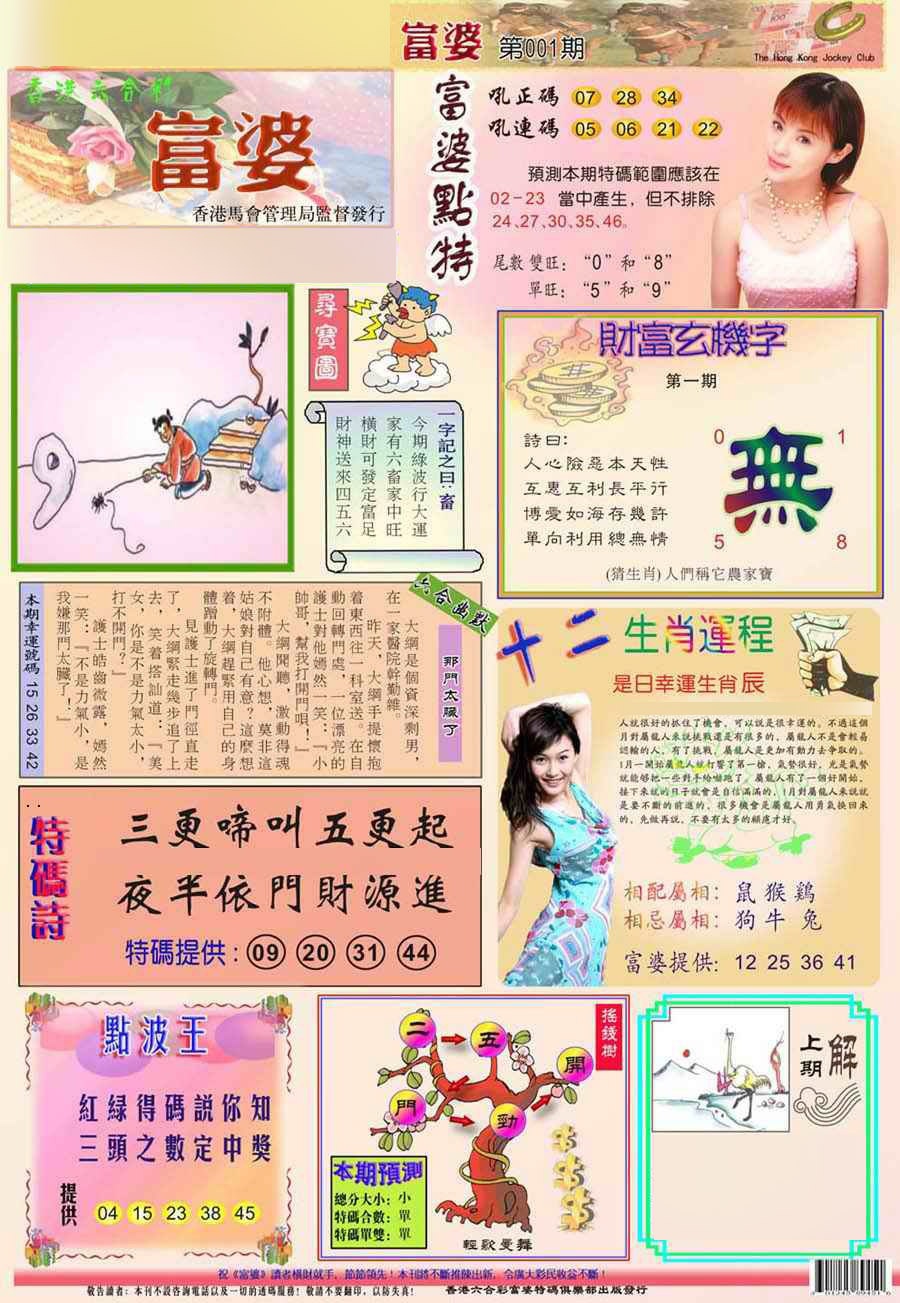 富婆 第001期
The Hong Kong Jockey Club
香港六合彩
富婆
香港馬會管理局監督發行
富婆點特
吼正碼 07 28 34
吼連碼 05 06 21 22
預測本期特碼範圍應該在
02-23 當中產生，但不排除
24、27、30、35、46。
尾數雙旺：“0”和“8”
單旺：“5”和“9”
尋寶圖
一字記之曰：畜
今期綠波行大運
家有六畜家中旺
橫財可發定富足
財神送來四五六
財富玄機字
第一期
詩曰：
人心險惡本天性
互惠互利長平行
博愛如海存幾許
單向利用總無情
0 1
無
5 8
(猜生肖)人們稱它農家寶
六合幽默
那門太臟了
大綱是個資深剩男，
在一家醫院幹勤雜。
昨天，大綱手提懷抱
着東西往一科室送。在自
動回轉門處，一位漂亮的
護士對他嫣然一笑：『小
帥哥，幫我打開門唄！』
大綱聞聽，激動得魂
不附體。他心想，莫非這
姑娘對自己有意？這麼想
着，大綱趕緊用自己的身
體蹭動了旋轉門。
見護士進了門徑直走
了，大綱緊走幾步追了上
去，笑着搭訕道：『美
女，你是不是力氣太小，
打不開門？』
護士皓齒微露，嫣然
一笑：『不是力氣小，是
我嫌那門太臟了！』
本期幸運號碼 15 26 33 42
十二生肖運程
是日幸運生肖辰
人就很好的抓住了機會，可以說是很幸運的。不過這個
月對屬龍人來說挑戰還是有很多的，屬龍人不是會輕易
認輸的人，有了挑戰，屬龍人是更加有動力去爭取的。
1月一開始屬龍人就打響了第一槍，氣勢很好，光是氣勢
就能够把一些對手給嚇跑了，屬龍人有了一個好開始，
接下來就的日子就會是自信滿滿的，1月對屬龍人來說就
是要不斷的前進的，很多機會是屬龍人用勇氣換回來
的，先做再說，不要有太多的顧慮才好。
相配屬相：鼠 猴 鷄
相忌屬相：狗 牛 兔
富婆提供：12 25 36 41
特碼詩
三更啼叫五更起
夜半依門財源進
特碼提供：09 20 31 44
點波王
紅緑得碼説你知
三頭之數定中獎
提供 04 15 23 38 45
搖錢樹
二 五 開
門 勁
本期預測
總分大小：小
特碼合數：單
特碼單雙：單
輕歌曼舞
上期解
祝《富婆》讀者橫財就手，節節領先！本刊將不斷推陳出新，令廣大彩民收益不斷！
敬告讀者：本刊不設咨詢電話以及一切的透碼服務！敬請不要翻印，以防失真！ 香港六合彩富婆特碼俱樂部出版發行